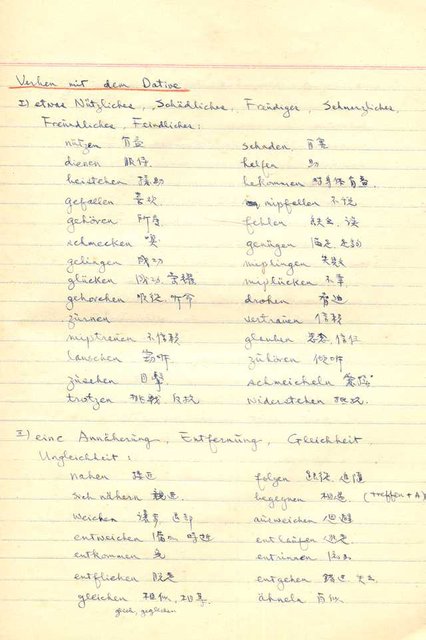 Verben mit dem Dative
I) etwas Nützliches, Schädliches, Freudiger, Schmerzliches,
Freundliches, Feindliches:
nützen 有益 schaden 有害
dienen 服侍 helfen 助
beistehen 援助 bekommen 對身体有益
gefallen 喜欢 mißfallen 不悦
gehören 所有 fehlen
schmecken genügen
gelingen 成功 mißlingen 失敗
glücken 成功 mißglücken 不幸
gehorchen 服從 听命 drohen 脅迫
zürnen vertrauen 信賴
mißtrauen 不信賴 glauben
lauschen zuhören 傾听
zusehen 目擊 schmeicheln
trotzen 挑戦 反抗 widerstehen 抵抗
II) eine Annäherung, Entfernung, Gleichheit,
Ungleichheit:
nahen 接近 folgen 跟從 追隨
sich nähern 親近 begegnen 相遇 (treffen + A)
weichen ausweichen 迴避
entweichen entlaufen
entkommen entrinnen
entfliehen entgehen
gleichen 相似 ähneln 肖似
glich, geglichen